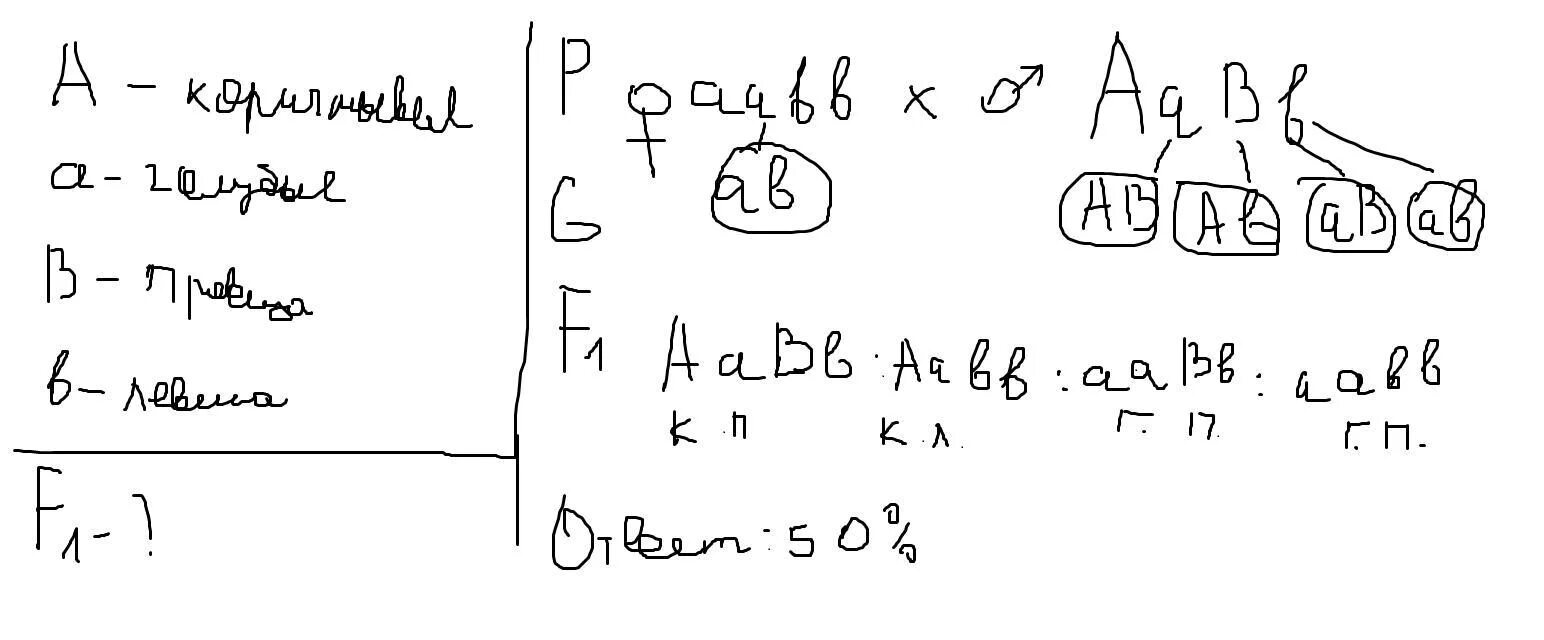 А - коричневые
а - голубые
В - правша
в - левша
F1 - ?
P ♀ аавв х ♂ АаВв
G ав АВ Ав аВ ав
F1 АаВв : Аавв : ааВв : аавв
к п к л. г. п. г. п.
Ответ: 50%